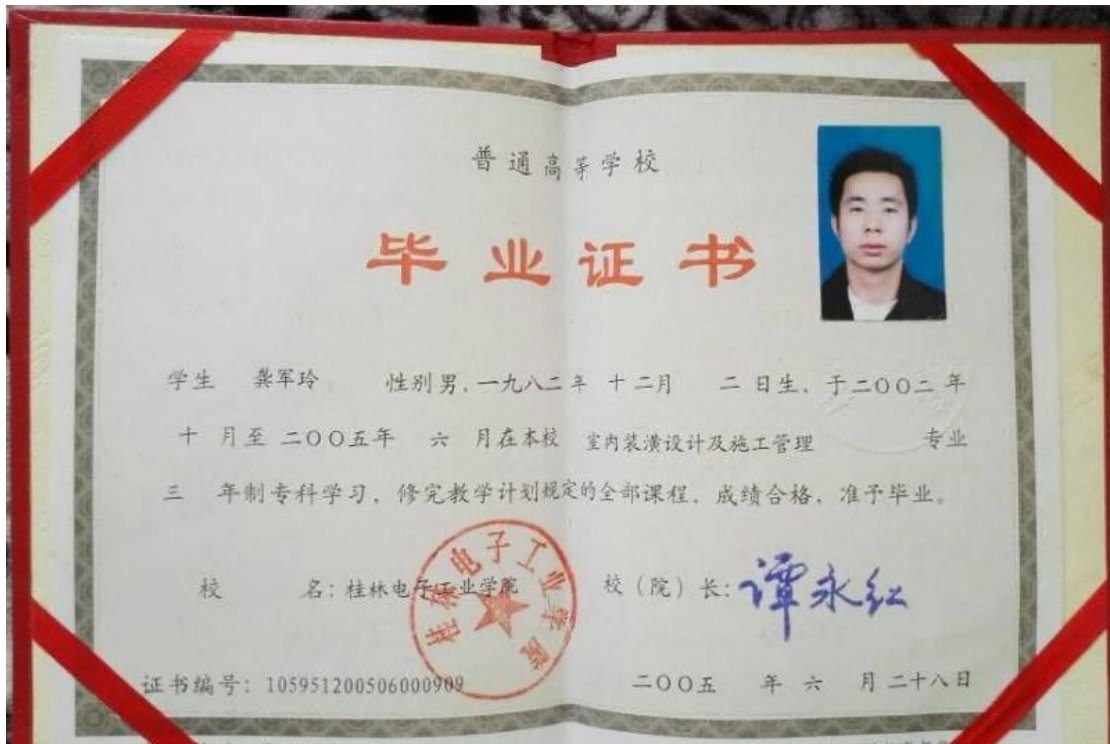 普通高等学校
毕业证书
学生 龚军玲 性别男,一九八二年 十二月 二日生、于二〇〇二年
十 月至 二〇〇五年 六 月在本校 室内装潢设计及施工管理 专业
三 年制专科学习,修完教学计划规定的全部课程,成绩合格,准予毕业。
校 名:桂林电子工业学院 校(院)长:谭永红
桂林电子工业学院
证书编号:105951200506000909 二〇〇五 年 六 月二十八日